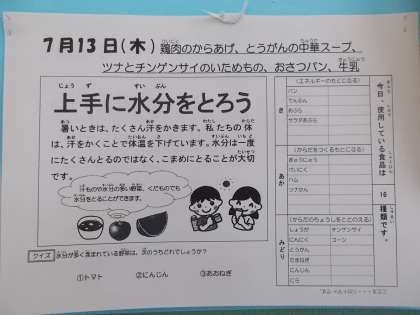 7月13日(木) 鶏肉のからあげ、とうがんの中華スープ、
ツナとチンゲンサイのいためもの、おさつパン、牛乳
上手に水分をとろう
暑いときは、たくさん汗をかきます。私たちの体
は、汗をかくことで体温を下げています。水分は一度
にたくさんとるのではなく、こまめにとることが大切
です。
汁ものや水分の多い野菜、くだものでも
水分をとることができます。
クイズ 水分が多く含まれている野菜は、次のうちどれでしょうか?
①トマト ②にんじん ③あおねぎ
今日、使用している食品は
16
種類です。
(エネルギーのもとになる)
き
パン
でんぷん
あぶら
サラダあぶら
(からだをつくるもとになる)
あか
ぎゅうにゅう
けいにく
ハム
ツナかん
(からだのちょうしをととのえる)
みどり
しょうが チンゲンサイ
にんにく コーン
とうがん
たまねぎ
にんじん
にら